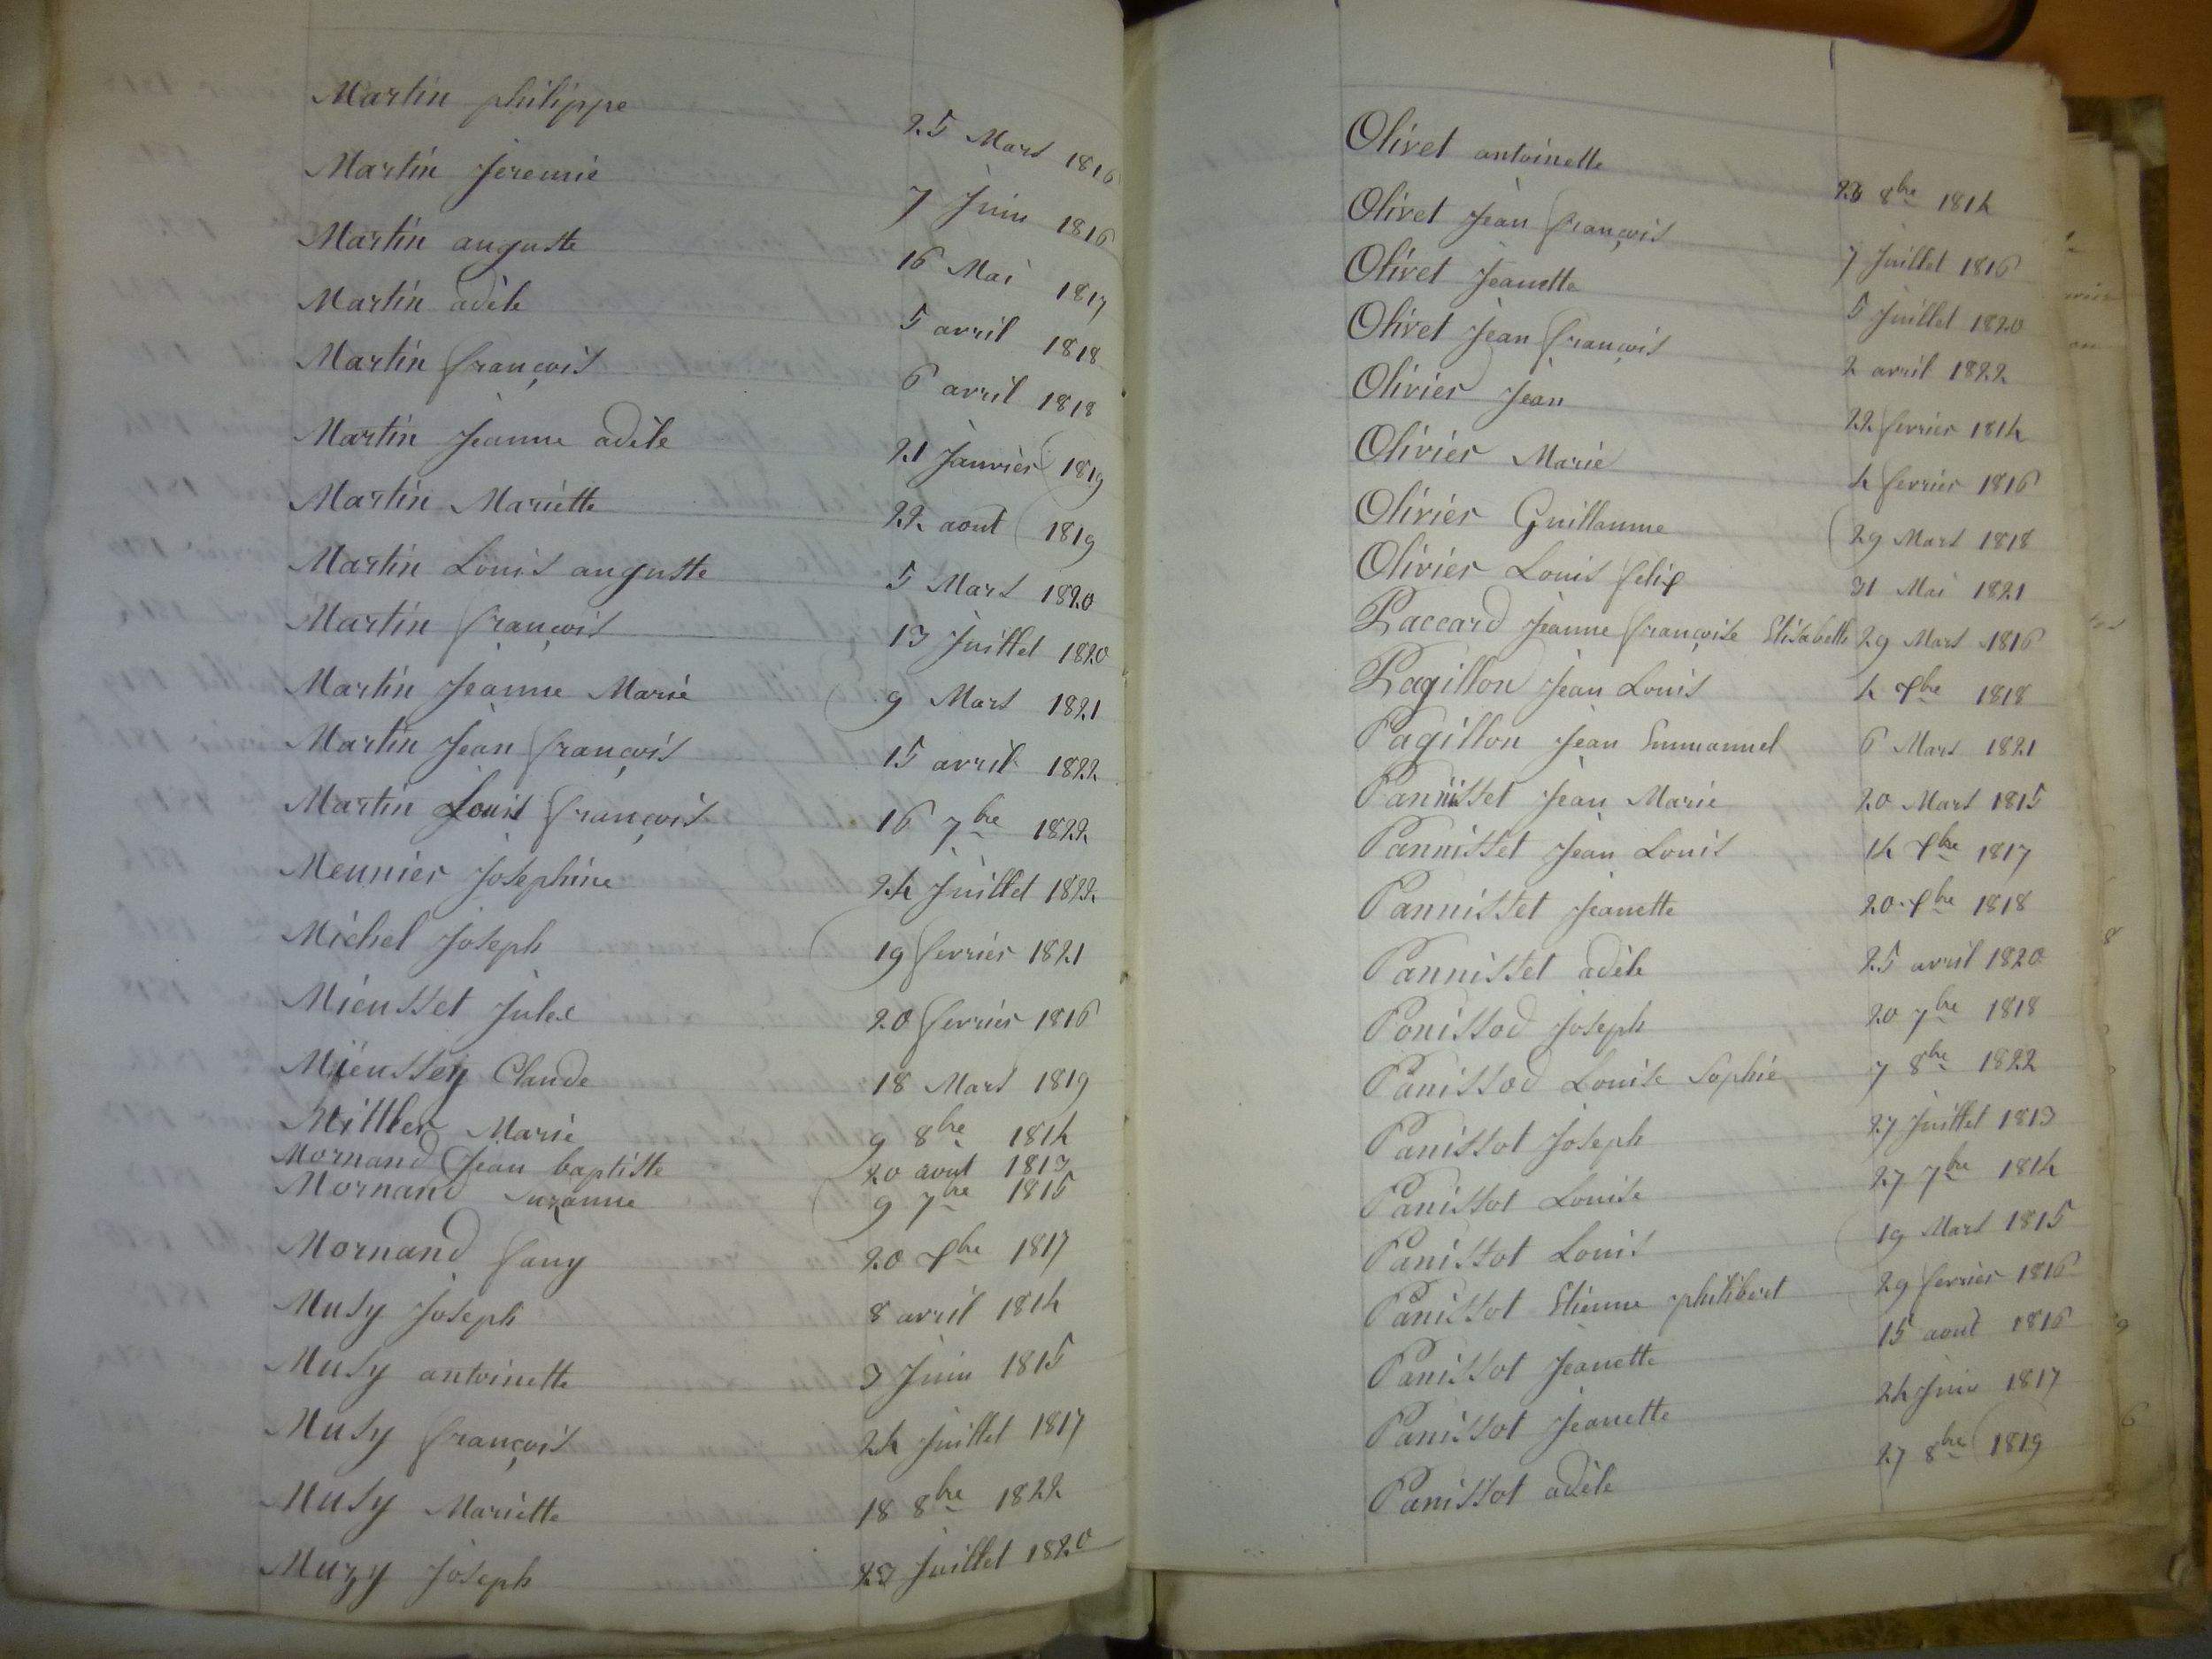 Martin philippe 25 Mars 1816
Martin Jeremie 7 Juin 1816
Martin auguste 16 Mai 1817
Martin adèle 5 avril 1818
Martin françois 6 avril 1818
Martin Jeanne adèle 21 Janvier 1819
Martin Mariette 22 aout 1819
Martin Louis auguste 5 Mars 1820
Martin françois 13 Juillet 1820
Martin Jeanne Marie 9 Mars 1821
Martin Jean françois 15 avril 1822
Martin Louis françois 16 7bre 1822
Meunier Josephine 24 Juillet 1822
Michel Joseph 19 fevrier 1821
Mieusset Jules 20 fevrier 1816
Mieussey Claude 18 Mars 1819
Marie 9 8bre 1814
Mornand Jean baptiste 20 aout 1813
Mornand Suzanne 9 7bre 1815
Mornand fany 20 Xbre 1817
Musy Joseph 8 avril 1814
Musy antoinette 3 Juin 1815
Musy françois 24 Juillet 1817
Musy Mariette 18 8bre 1822
Muzy Joseph 23 Juillet 1820
Olivet antoinette 8bre 1814
Olivet Jean françois 7 Juillet 1816
Olivet Jeanette 5 Juillet 1820
Olivet Jean françois 2 avril 1822
Olivier Jean 22 fevrier 1814
Olivier Marie 4 fevrier 1816
Olivier Guillaume 29 Mars 1818
Olivier Louis felix 31 Mai 1821
Paccard Jeanne françoise Elisabeth 29 Mars 1816
Pagillon Jean Louis 4 Xbre 1818
Pagillon Jean Emmanuel 6 Mars 1821
Pannisset Jean Marie 20 Mars 1815
Pannisset Jean Louis 14 Xbre 1817
Pannisset Jeanette 20 Xbre 1818
Pannisset adèle 25 avril 1820
Ponissod Joseph 20 7bre 1818
Panissod Louise Sophie 7 8bre 1822
Panissot Joseph 27 Juillet 1813
Panissot Louise 27 7bre 1814
Panissot Louis 19 Mars 1815
Panissot Etienne philibert 29 fevrier 1816
Panissot Jeanette 15 aout 1816
Panissot Jeanette 24 Juin 1817
Panissot adèle 27 8bre 1819